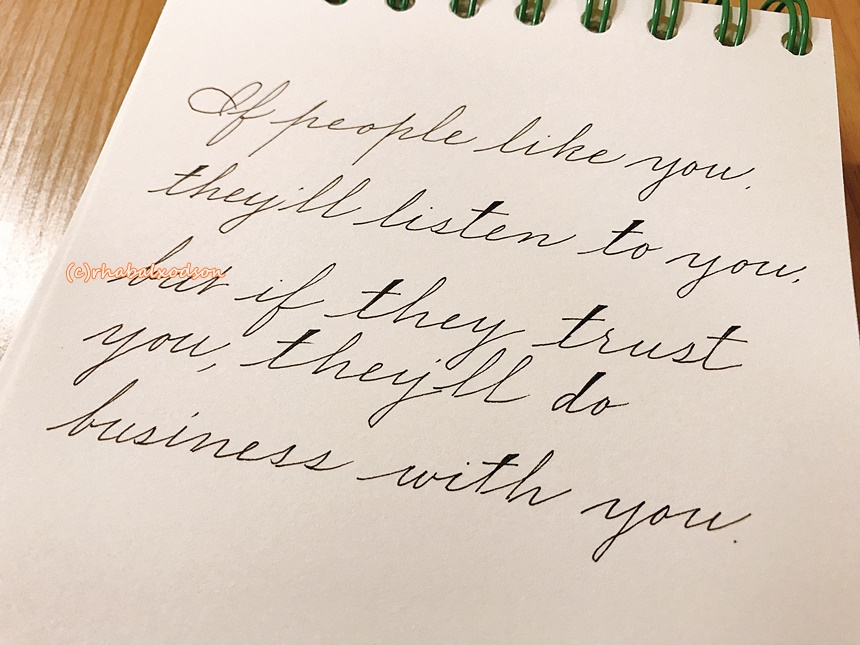 If people like you,
they'll listen to you,
(c)rhabalxodson
but if they trust
you, they'll do
business with you.